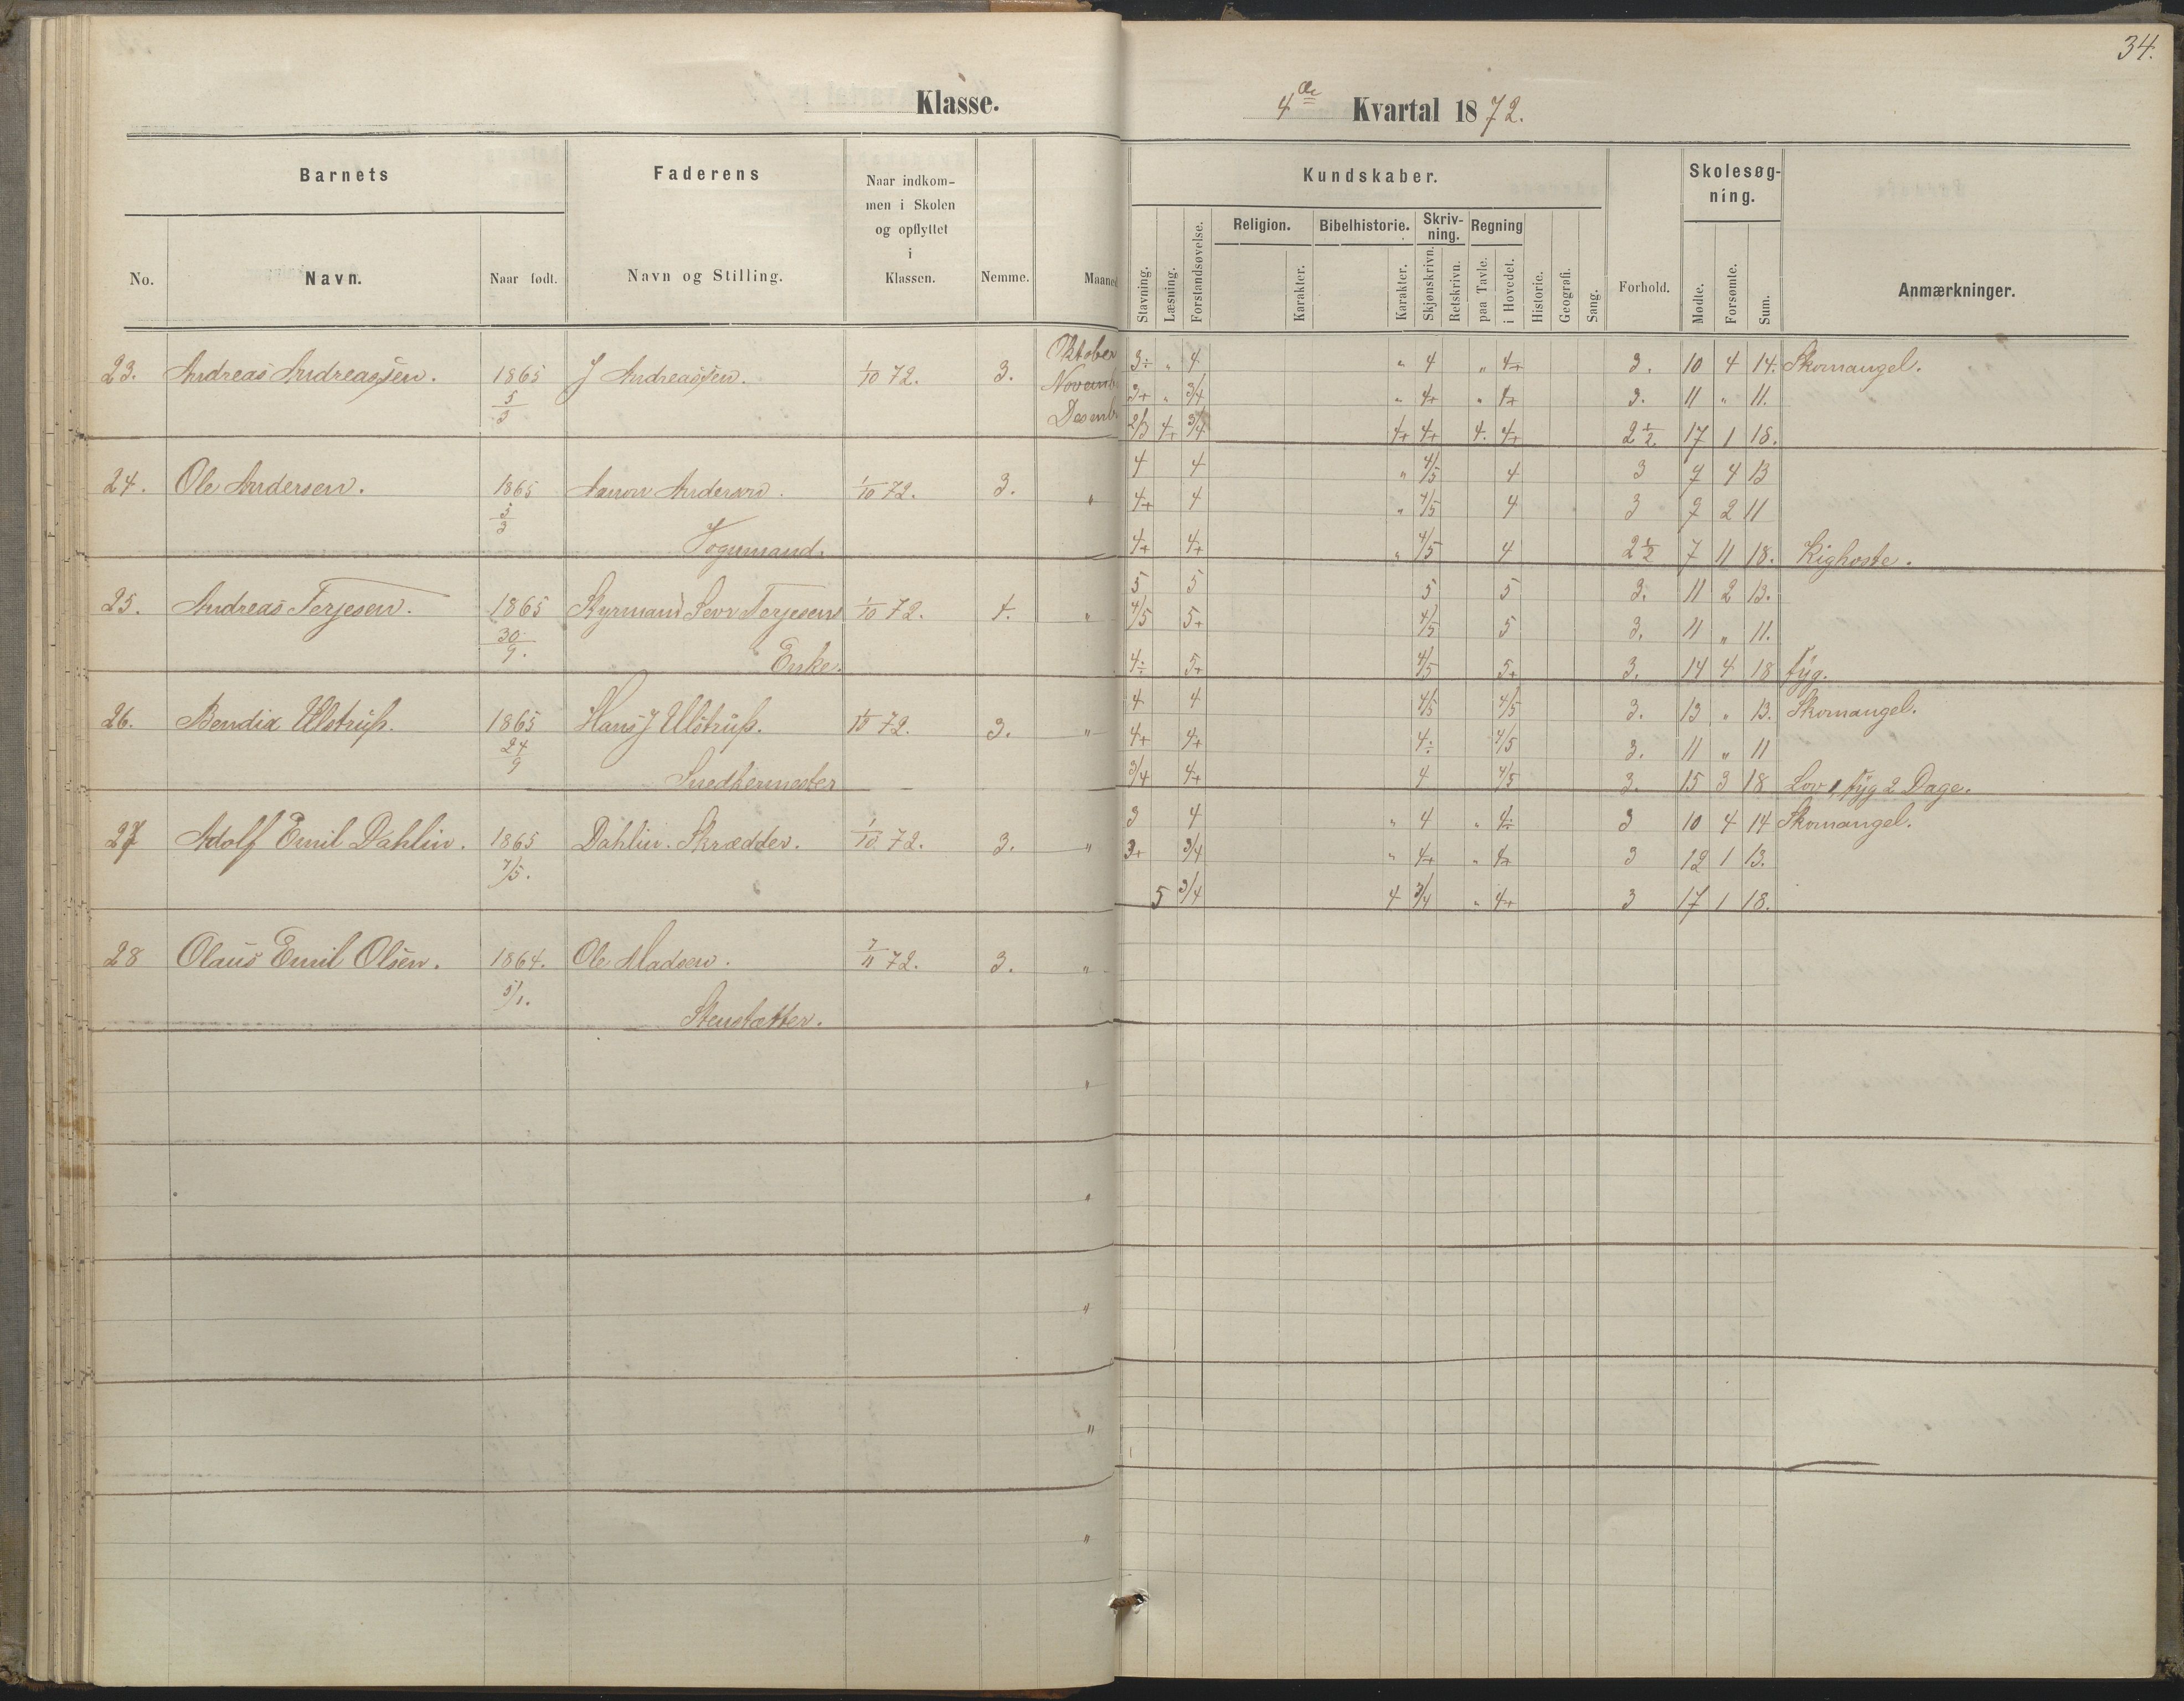 34.
Klasse.
4de Kvartal 1872.
Barnets
Faderens
Naar indkom-
men i Skolen
og opflyttet
i
Klassen.
Kundskaber.
Skolesøg-
ning.
Religion. Bibelhistorie. Skriv-
ning. Regning
No. Navn. Naar født. Navn og Stilling. Nemme. Maaned
Stavning. Læsning. Forstandsøvelse. Karakter. Karakter. Skjønskrivn. Retskrivn. paa Tavle. i Hovedet. Historie. Geografi. Sang. Forhold. Mødte. Forsømte. Sum. Anmærkninger.
23. Andreas Andreassen. 1865 J Andreassen. 1/10 72. 3. Oktober 3÷ " 4 " 4 " 4+ 3. 10 4 14. Skomangel.
5/3 Novemb. 3+ " 3/4 " 4+ " 4+ 3. 11 " 11.
Desemb. 2/3 4+ 3/4 4+ 4+ 4. 4+ 2 1/2 17 1 18.
4 4 " 4/5 4 3 9 4 13
24. Ole Andersen. 1865 Andersen. 1/10 72. 3. " 4+ 4 " 4/5 4 3 9 2 11
5/3
Vognmand. 4+ 4+ " 4/5 4 2 1/2 7 11 18. Kighoste.
5 5 5 5 3. 11 2 13.
25. Andreas Terjesen. 1865 Styrmand Terjesens 1/10 72. 4. " 4/5 5+ 4/5 5 3. 11 " 11.
30/9.
Enke. 4÷ 5+ 4/5 5+ 3. 14 4 18 syg.
4 4 4/5 4/5 3. 13 " 13. Skomangel.
26. Bendix Ulstrup. 1865 Hans J Ulstrup. 1/10 72. 3. " 4+ 4+ 4÷ 4/5 3. 11 " 11
24/9
Snedkermester 3/4 4+ 4 4/5 3. 15 3 18 Lov 1, syg 2 Dage.
3 4 " 4 " 4÷ 3 10 4 14 Skomangel.
27 Adolf Emil Dahlin. 1865 Dahlin. Skrædder. 1/10 72. 3. " 3+ 3/4 " 4+ " 4+ 3 12 1 13.
7/5.
5 3/4 4 3/4 " 4+ 3 17 1 18.
28 Olaus Emil Olsen. 1864. Ole Madsen. 7/11 72. 3. "
5/1.
Stensætter.
"
"
"
"
"